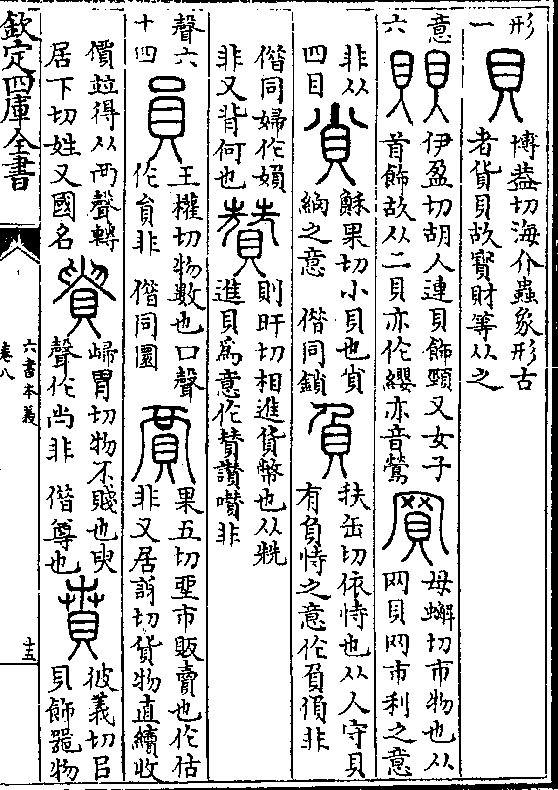 形
一
貝
博葢切海介蟲象形古
者貨貝故寳財等从之
意
六
賏
伊盈切胡人連貝飾頸又女子
首飾故从二貝亦作纓亦音鶯
買
母蠏切市物也从
网貝网市利之意
非从
四目
𧴪
蘇果切小貝也貨
之意　偕同鎖
負
扶缶切依恃也从人守貝
有負恃之意作負偩非
偕同婦作媍
非又背何也
贊
則旰切相進貨幣也从兟
進貝爲意作賛讃囋非
聲六
十四
員
王權切物數也口聲
作貟非　偕同圜
賈
果五切坐市販賣也作估
非又居訝切貨物直續收
價竝得从襾聲轉
居下切姓又國名
貴
歸胃切物不賤也臾
聲作尚非　偕尊也
賁
彼義切㠯
貝飾器物
欽定四庫全書
六書本義
卷八
十三